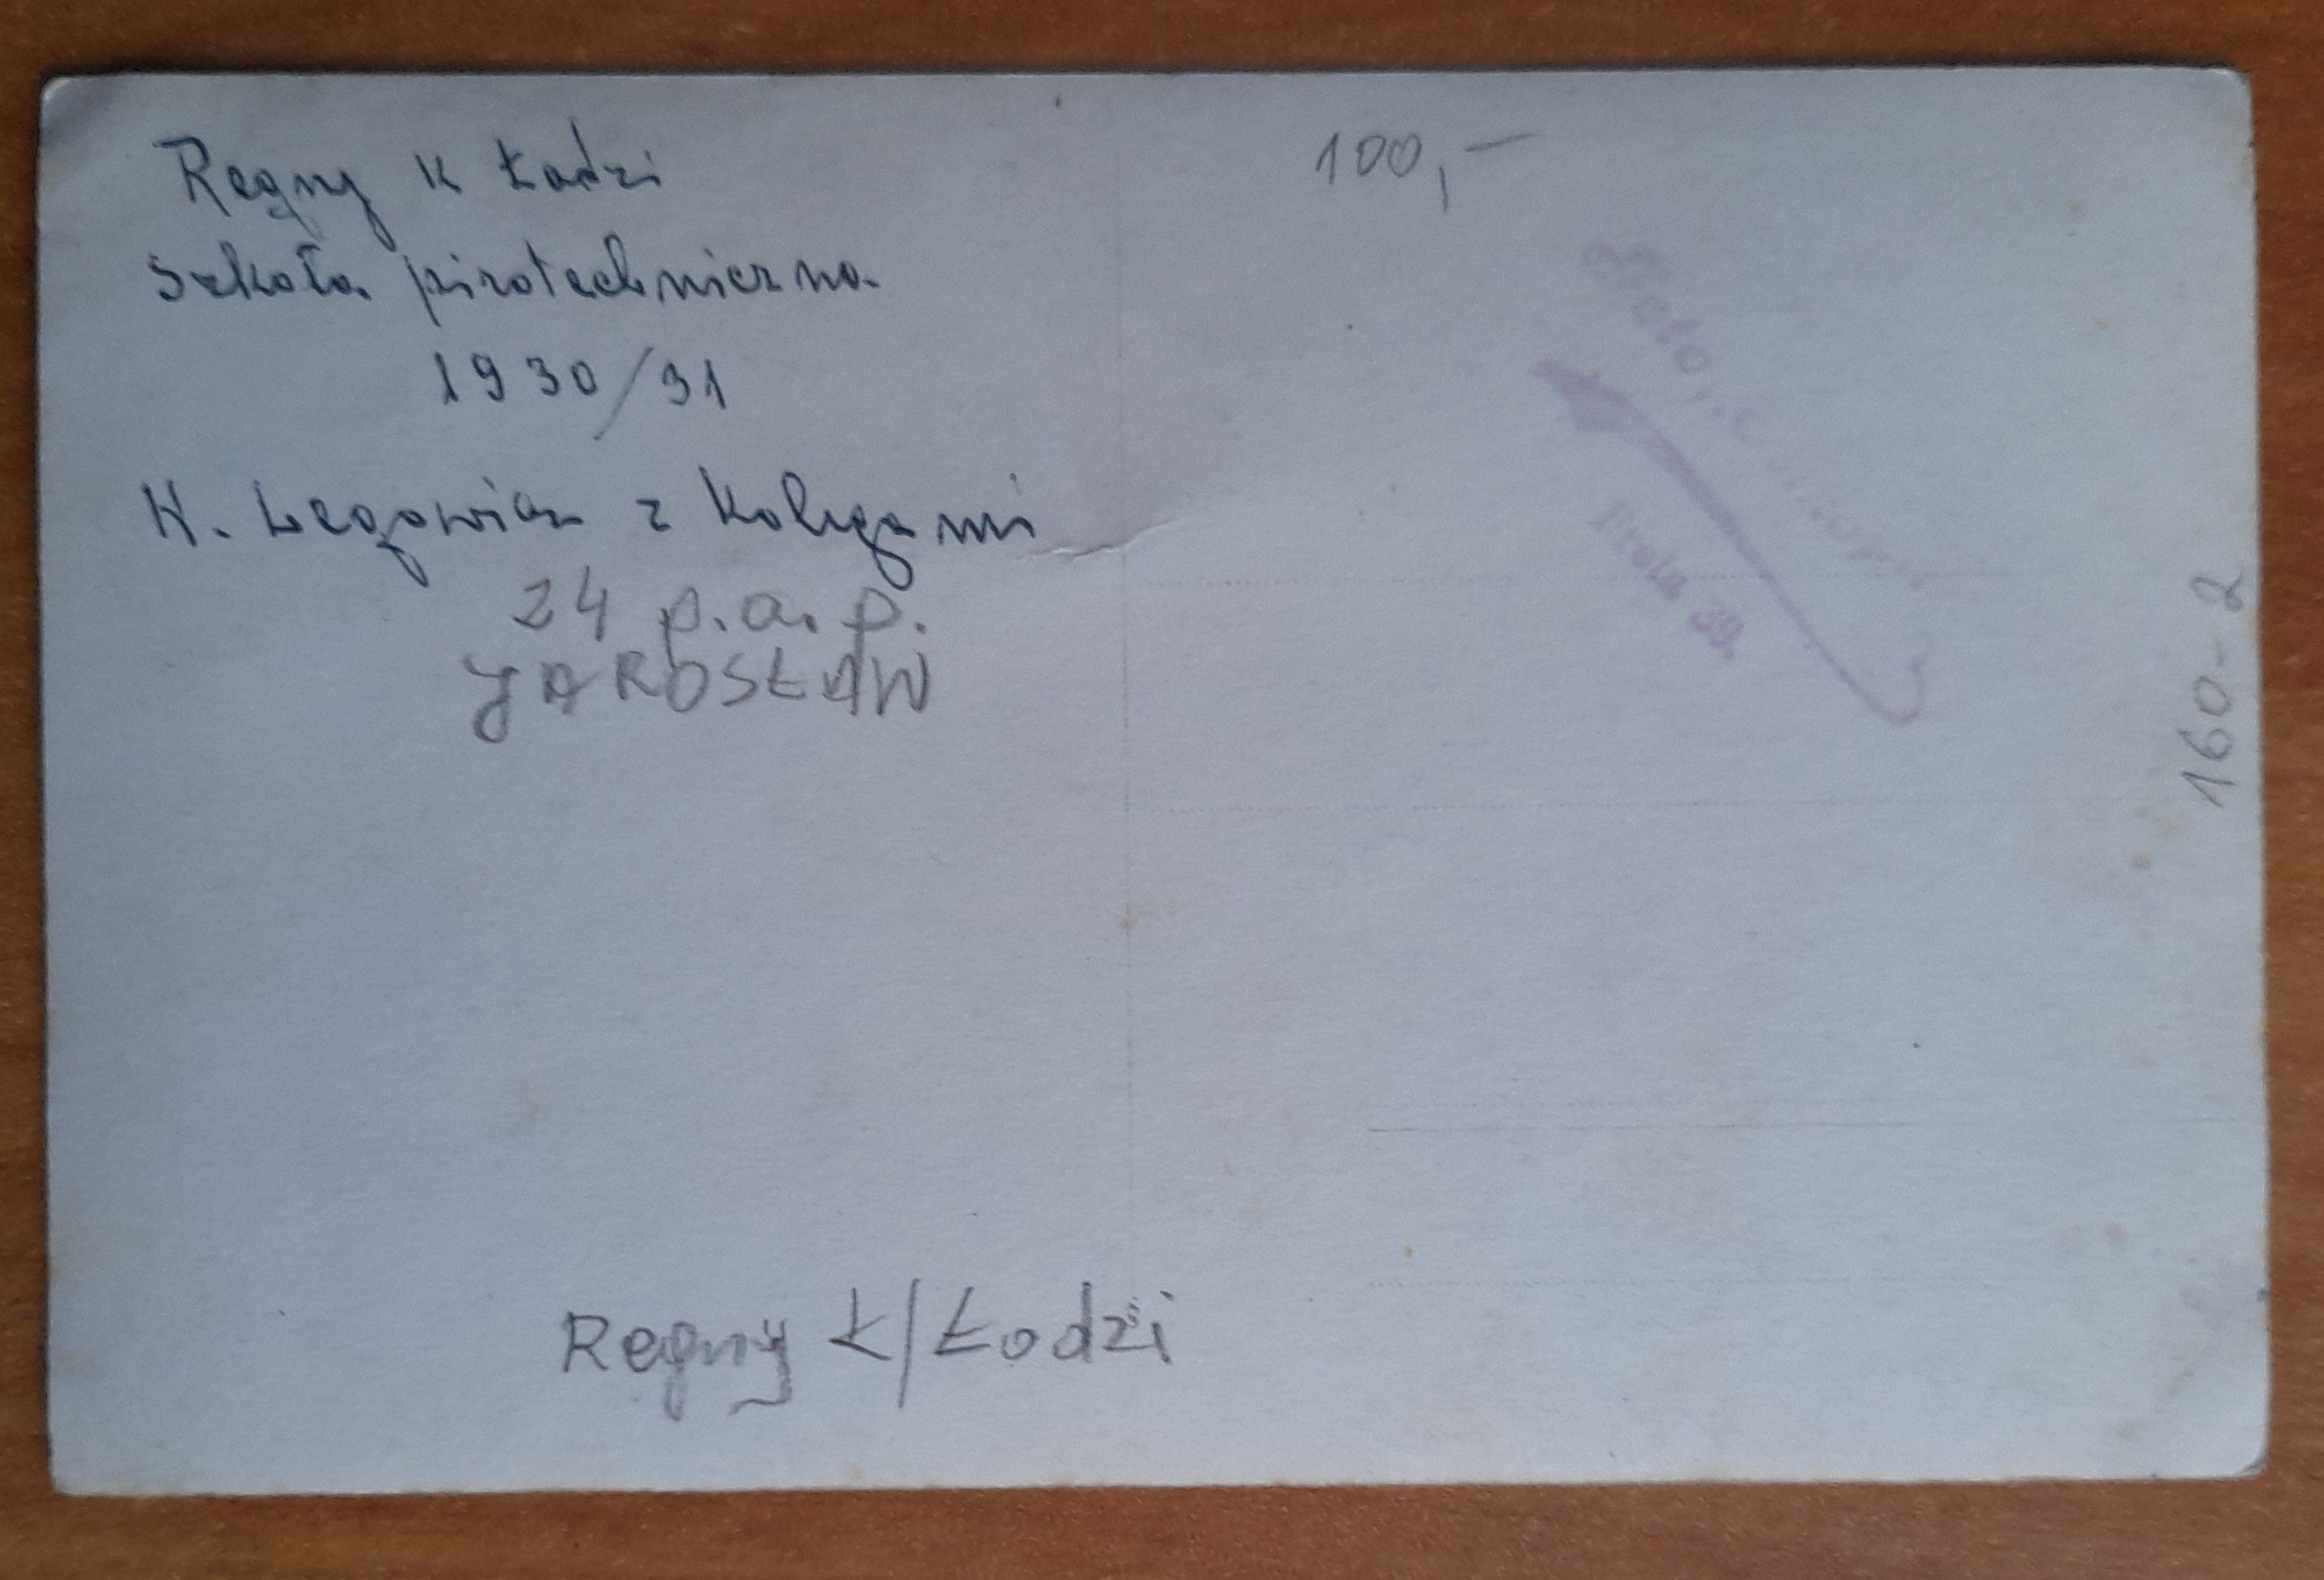 Regny K Łodzi
Szkoła pirotechniczna
1930/31
H. Łegowicz z Kolegami
24 p.a.p.
JAROSŁAW
100,-
Foto
39.
160-2
Regny k/Łodzi